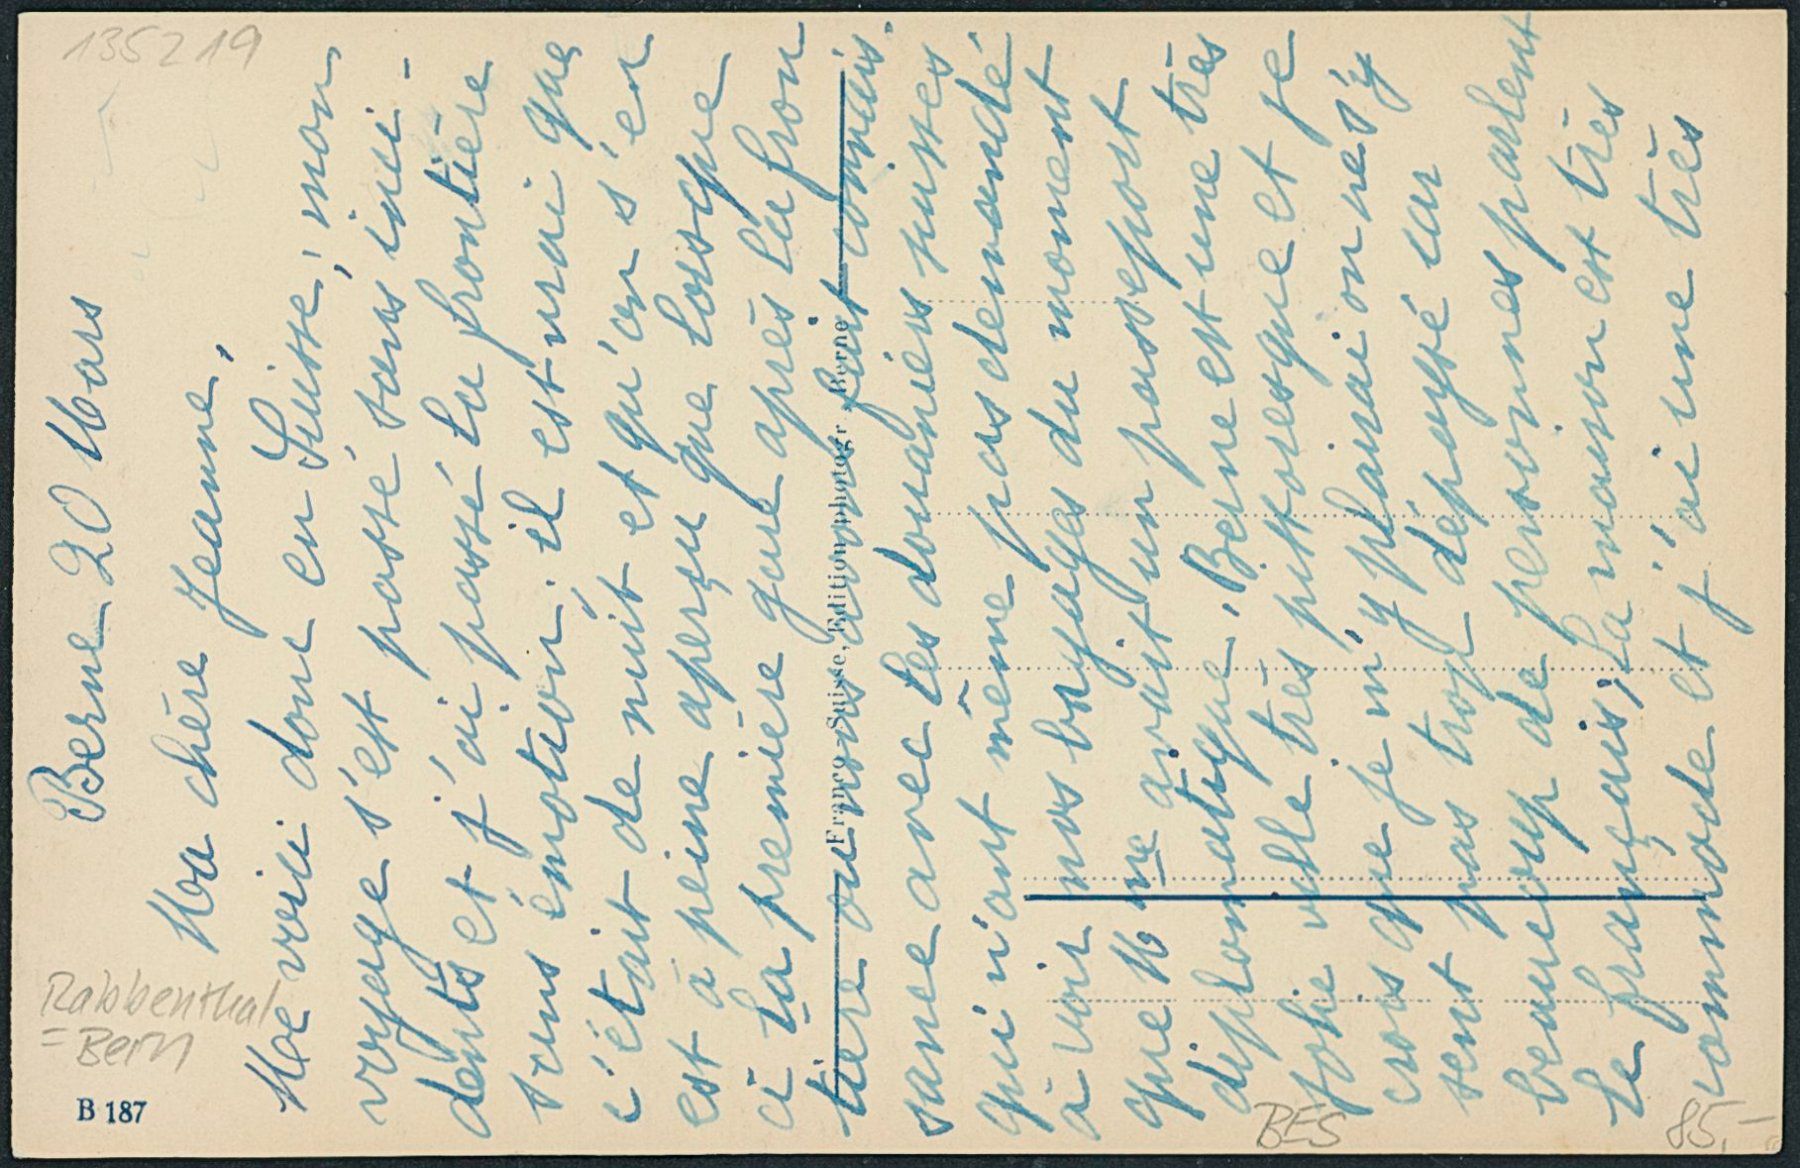 135219
Berne 20 Mars
Ma chère Jeanne,
Me voici donc en Suisse; mon
voyage s'est passé sans inci-
dents et j'ai passé la frontière
sans émotion; il est vrai que
c'était de nuit et qu'on s'en
est à peine aperçu que lorsque
à la première gare après la fron
tière où nous avons fait connais.
sance avec les douaniers suisses
qui n'ont même pas demandé
à voir nos bagages du moment
que M me avait un passeport
diplomatique. Berne est une très
jolie ville très pittoresque et je
crois que je m'y plairai on ne s'y
sent pas trop dépaysé car
beaucoup de personnes parlent
le français; la maison est très
commode et j'ai une très
Franco-Suisse, Edition photogr. Berne
Rabbenthal
= Bern
B 187
BES
85.-